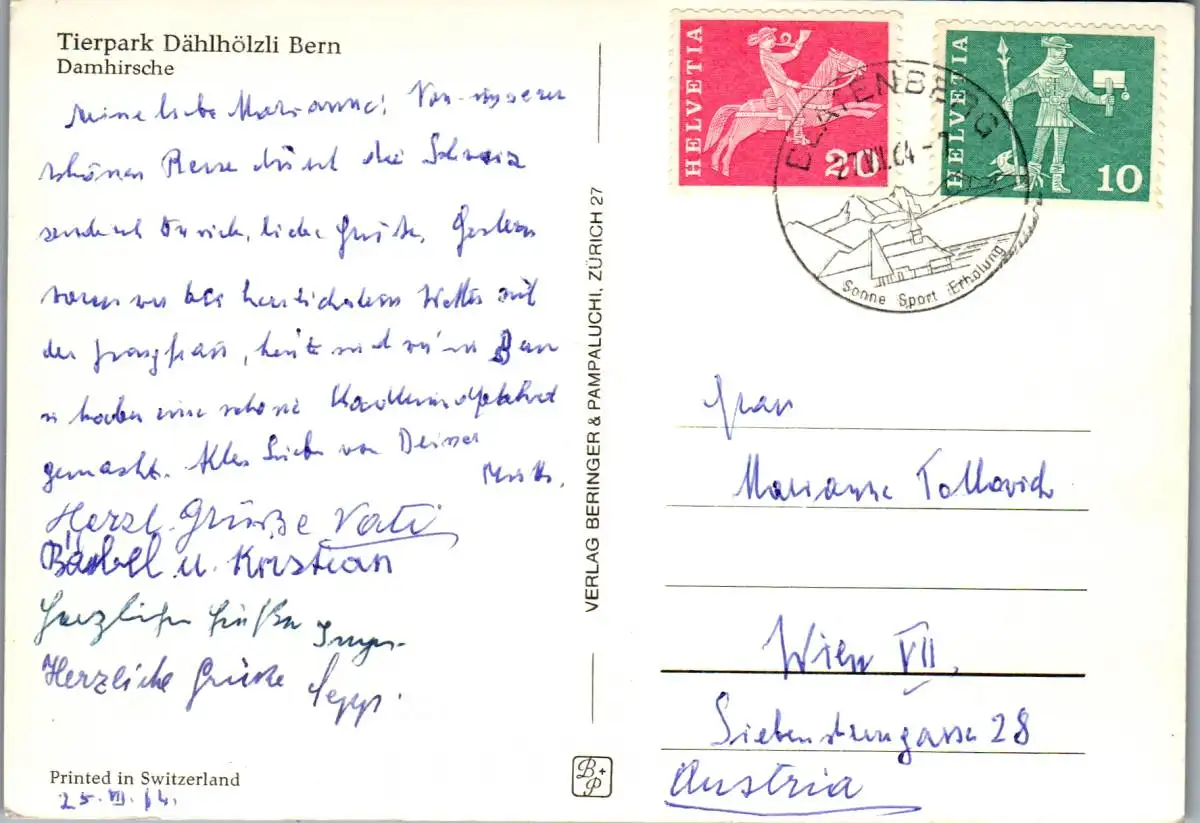 Tierpark Dählhölzli Bern
Damhirsche
Meine liebe Marianne! Von unserer
schönen Reise durch die Schweiz
sende ich Dir viele, liebe Grüße. Gestern
waren wir bei herrlichstem Wetter auf
der Jungfrau, heute sind wir in Bern
u. haben eine schöne
gemacht. Alles Liebe von Deiner
Mutti.
Herzl. Grüße Vati
Bärbel u. Kristian
Herzliche Grüße Inge
Herzliche Grüße Sepp.
Printed in Switzerland
25. VII. 64.
VERLAG BERINGER & PAMPALUCHI, ZÜRICH 27
B+P
HELVETIA
20
HELVETIA
10
BEATENBERG
27.VII.64-7
Sonne Sport Erholung
Frau
Marianne
Wien VII.
Siebensterngasse 28
Austria